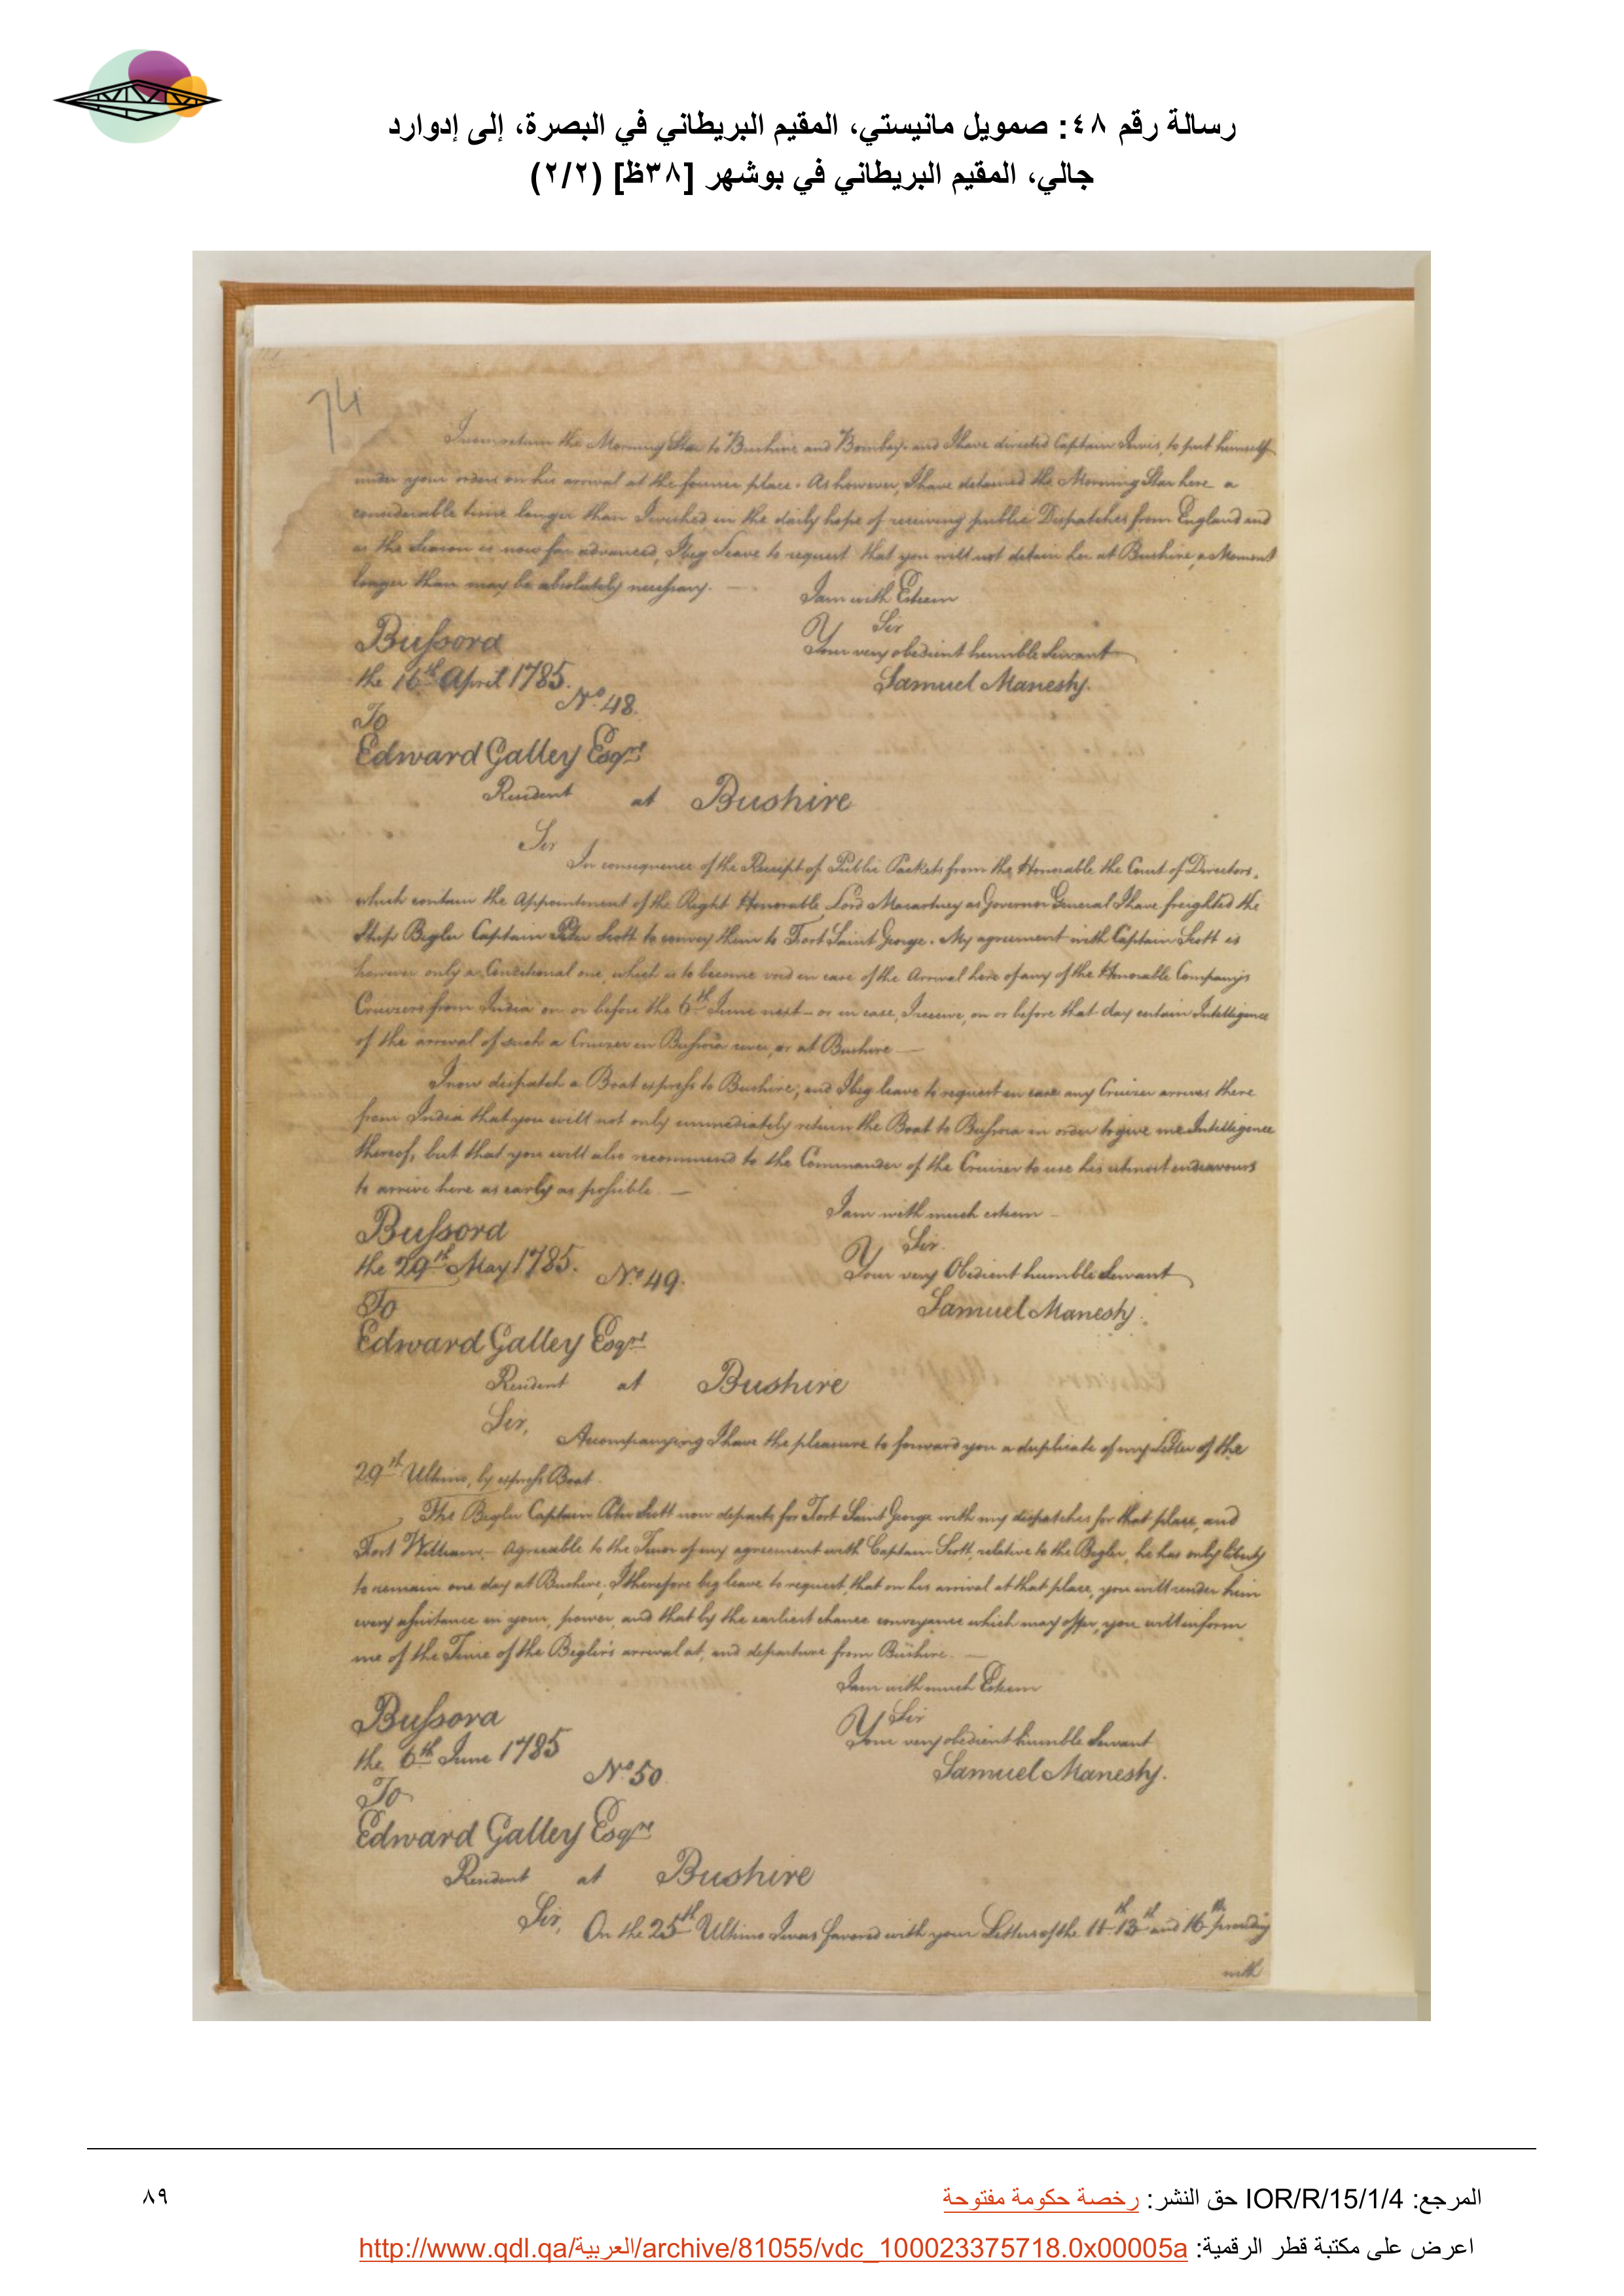 رسالة رقم ٤٨: صمويل مانيستي، المقيم البريطاني في البصرة، إلى إدوارد
جالي، المقيم البريطاني في بوشهر [٣٨ظ] (٢/٢)
74
I now return the Morning Star to Bushire and Bombay. and I have directed Captain Jervis, to put himself
under your orders on his arrival at the former place. As however, I have detained the Morning Star here a
considerable time longer than I wished in the daily hope of receiving public Dispatches from England and
as the Season is now far advanced, I beg leave to request that you will not detain her at Bushire, a Moment
longer than may be absolutely necessary. —
I am with Esteem
Sir
Your very obedient humble Servant
Samuel Manesty.
Bussora
the 16th April 1785.
No. 48.
To
Edward Galley Esqre
Resident at Bushire
Sir
In consequence of the Receipt of Public Packets from the Honorable the Court of Directors,
which contain the Appointment of the Right Honorable Lord Macartney as Governor General I have freighted the
Ship Begler Captain Peter Scott to convey them to Fort Saint George. My agreement with Captain Scott is
however only a Conditional one, which is to become void in case of the Arrival here of any of the Honorable Companys
Cruizers from India on or before the 6th June next — or in case, I receive, on or before that day certain Intelligence
of the arrival of such a Cruizer in Bussora river, or at Bushire —
I now dispatch a Boat express to Bushire, and I beg leave to request in case any Cruizer arrives there
from India that you will not only immediately return the Boat to Bussora in order to give me Intelligence
thereof, but that you will also recommend to the Commander of the Cruizer to use his utmost endeavours
to arrive here as early as possible. —
I am with much esteem —
Sir.
Your very Obedient humble Servant
Samuel Manesty.
Bussora
the 29th May 1785.
No. 49.
To
Edward Galley Esqre
Resident at Bushire
Sir,
Accompanying I have the pleasure to forward you a duplicate of my Letter of the
29th Ultimo, by express Boat.
The Begler Captain Peter Scott now departs for Fort Saint George with my dispatches for that place, and
Fort William. — Agreeable to the Tenor of my agreement with Captain Scott, relative to the Begler, he has only liberty
to remain one day at Bushire. I therefore beg leave to request, that on his arrival at that place, you will render him
every assistance in your power, and that by the earliest chance conveyance which may offer, you will inform
me of the Time of the Begler's arrival at, and departure from Bushire. —
I am with much Esteem
Sir
Your very obedient humble Servant
Samuel Manesty.
Bussora
the 6th June 1785
No. 50
To
Edward Galley Esqre
Resident at Bushire
Sir,
On the 25th Ultimo I was favored with your Letters of the 11th 13th and 16th preceding
with
المرجع: IOR/R/15/1/4 حق النشر: رخصة حكومة مفتوحة
٨٩
اعرض على مكتبة قطر الرقمية: http://www.qdl.qa/العربية/archive/81055/vdc_100023375718.0x00005a